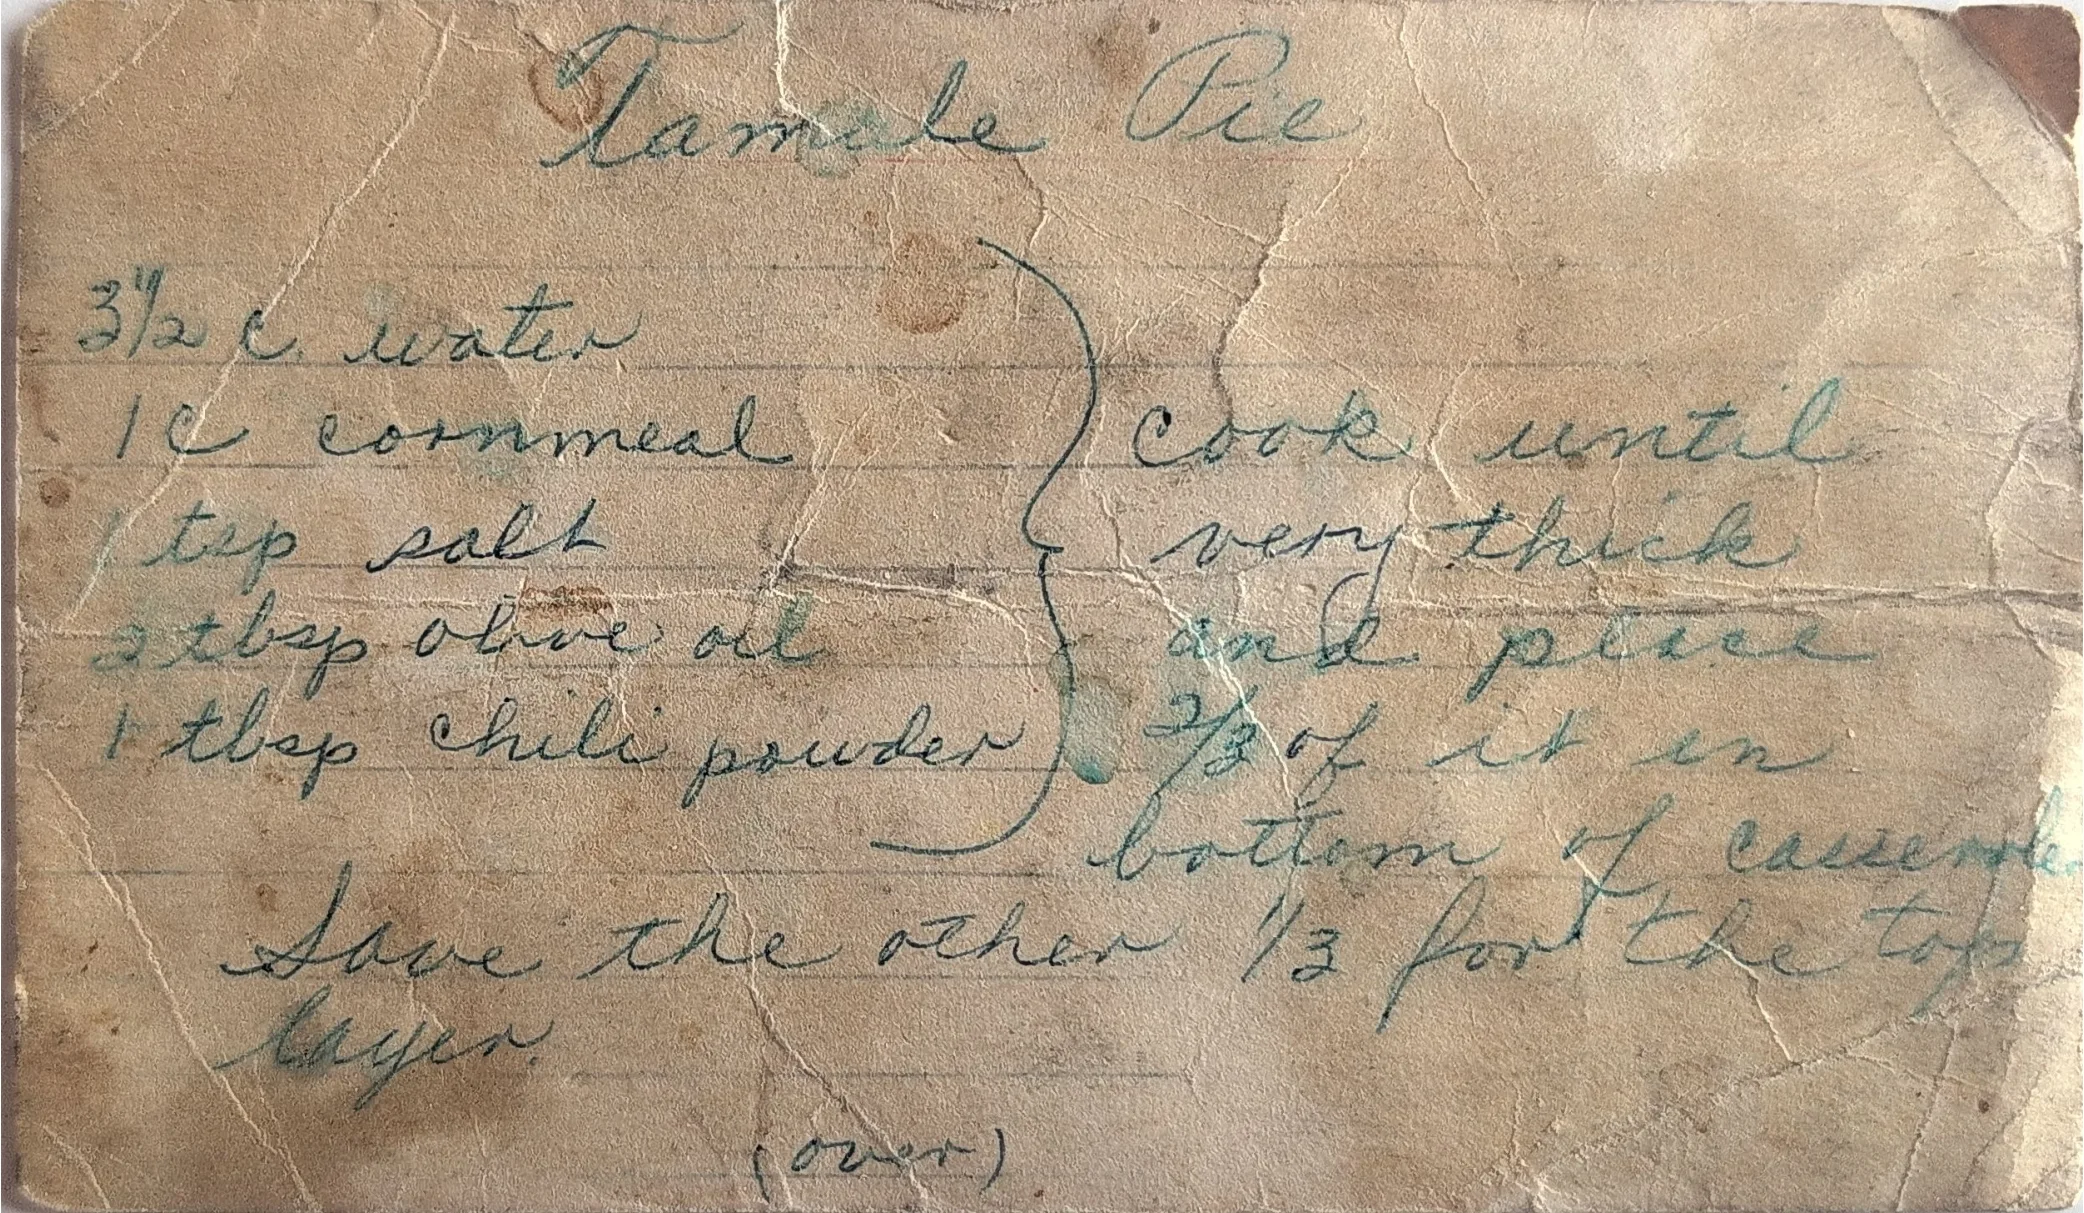 Tamale Pie
3 1/2 c. water
1 c cornmeal
1 tsp salt
2 tbsp olive oil
1 tbsp chili powder
cook until
very thick
and place
2/3 of it in
bottom of casserole
Save the other 1/3 for the top
layer.
(over)